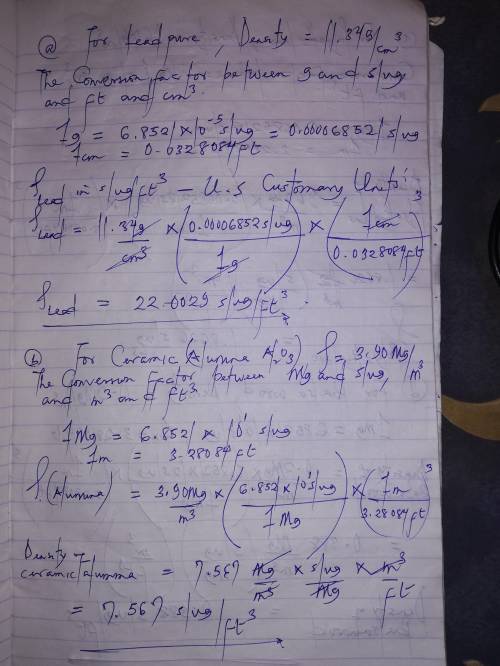 (a) For Lead pure, Density = 11.34g/cm³
The Conversion factor between g and slug
and ft and cm³.
1g = 6.852 × 10⁻⁵ slug = 0.00006852 slug
1cm = 0.0328084 ft
ρLead in slug/ft³ – U.S Customary Units'
ρLead = 11.34g/cm³ × (0.00006852 slug/1g) × (1cm/0.0328084 ft)³
ρLead = 22.0029 slug/ft³.
(b) For Ceramic (Alumina Al₂O₃) ρ = 3.90Mg/m³
The Conversion Factor between Mg and slug,
and m³ and ft³
1Mg = 6.852 × 10' slug
1m = 3.28084 ft
ρ(Alumina) = 3.90Mg/m³ × (6.852 × 10' slug/1Mg) × (1m/3.28084 ft)³
Density ceramic Alumina = 7.567 Mg/m³ × slug/Mg × m³/ft
= 7.567 slug/ft³